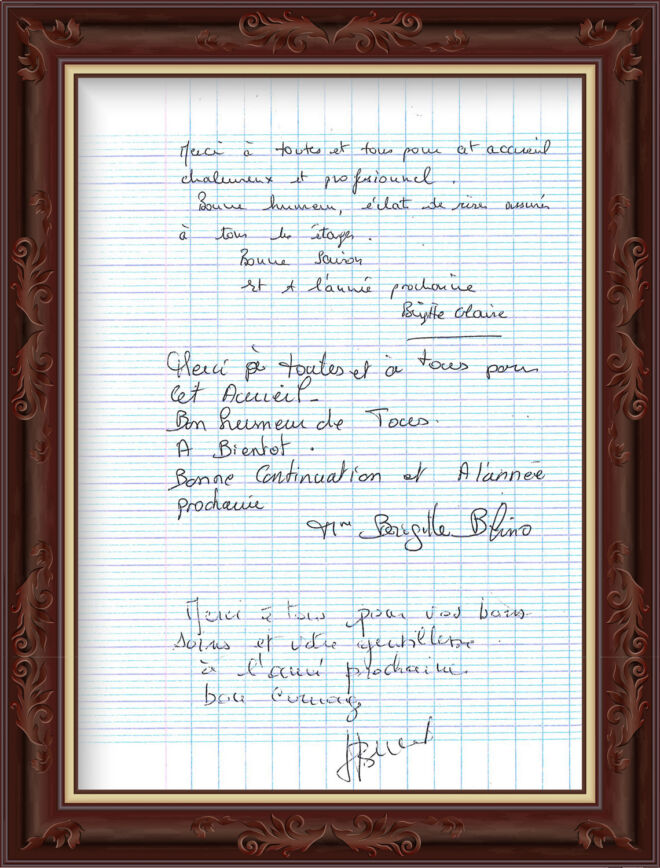 Merci à toutes et tous pour cet accueil
chaleureux et professionnel.
Bonne humeur, éclat de rires assurés
à tous les étages.
Bonne Saison
et A l'année prochaine
Brigitte Claire
Merci à toutes et à tous pour
cet Acceuil_
Bon humeur de Toces.
A Bientot.
Bonne Continuation et A l'année
prochaine
Mme Brigitte Blino
Merci à tous pour vos bons
soins et votre gentillesse
à l'anné prochaine.
bon